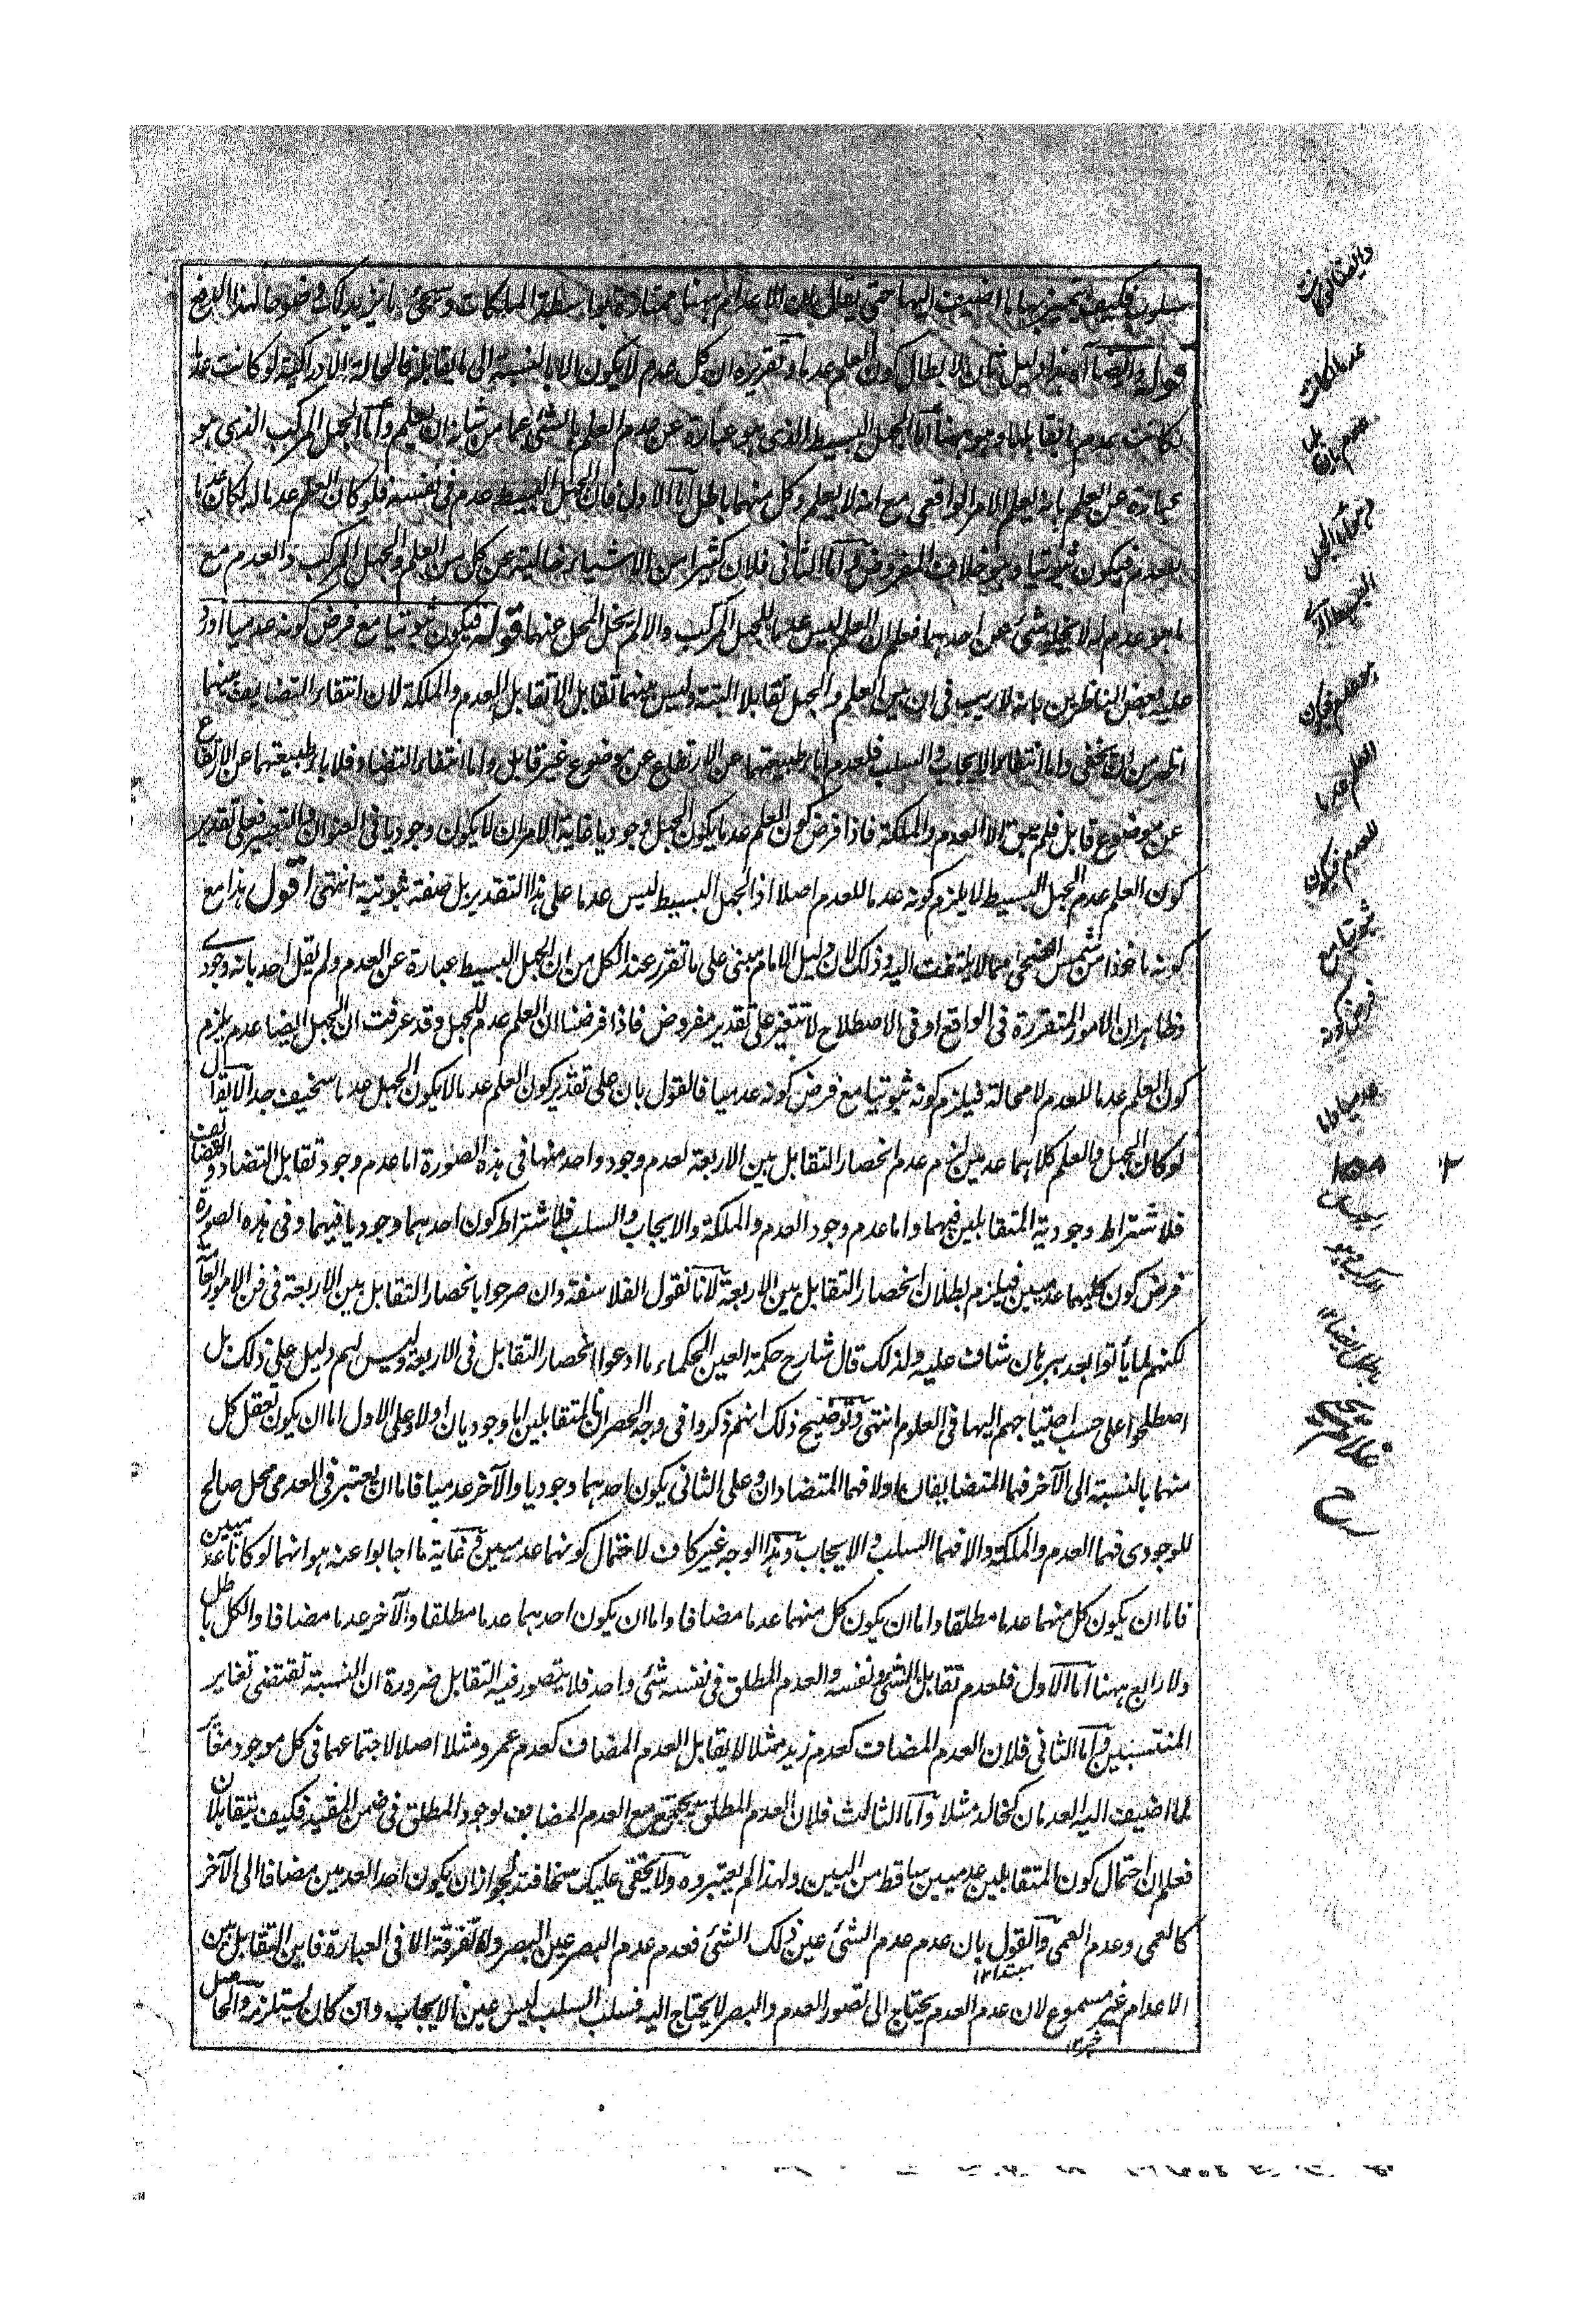 سلوب فكيف يتميز بها ما اضيفت اليها حتى يقال بان الاعدام ههنا ممتازة بواسطة الملكات وسيجئ ما يزيدك وضوحا لهذا الدفع
قوله وايضا هذا دليل ثان لابطال كون العلم عدما وتقريره ان كل عدم لا يكون الا بالنسبة الى ما يقابله فالحالة الادراكية لو كانت عدما
لكانت عدم ما يقابلها وهو ههنا اما الجهل البسيط الذى هو عبارة عن عدم العلم بالشئ عما من شانه ان يعلم واما الجهل المركب الذى هو
عبارة عن العلم بانه يعلم الامر الواقعى مع انه لا يعلم وكل منهما باطل اما الاول فان الجهل البسيط عدم فى نفسه فلو كان العلم عدما له لكان عدما
للعدم فيكون ثبوتيا وهو خلاف المفروض واما الثانى فلان كثيرا من الاشياء خالية عن كل من العلم والجهل المركب والعدم مع
ما هو عدم له لا يخلو شئ عن احدهما فعلم ان العلم ليس عدما للجهل المركب والا لم يخل المحل عنهما قوله فيكون ثبوتيا مع فرض كونه عدميا اورد
عليه بعض الناظرين بانه لا ريب فى ان بين العلم والجهل تقابلا البتة وليس بينهما تقابل الا تقابل العدم والملكة لان انتفاء التضايف بينهما
اظهر من ان يخفى واما انتفاء الايجاب والسلب فلعدم اباء طبيعتهما عن الارتفاع عن موضوع غير قابل واما انتفاء التضاد فلاباء طبيعتهما عن الارتفاع
عن موضوع قابل فلم يبق الا العدم والملكة فاذا فرض كون العلم عدما يكون الجهل وجوديا غاية الامر ان لا يكون وجوديا فى العنوان والتعبير فعلى تقدير
كون العلم عدم الجهل البسيط لا يلزم كونه عدما للعدم اصلا اذ الجهل البسيط ليس عدما على هذا التقدير بل صفة ثبوتية انتهى اقول هذا مع
كونه ماخوذا من شمس الضحى مما لا يلتفت اليه وذلك لان دليل الامام مبنى على ما تقرر عند الكل من ان الجهل البسيط عبارة عن العدم ولم يقل احد بانه وجودى
وظاهر ان الامور المتقررة فى الواقع او فى الاصطلاح لا تتغير على تقدير مفروض فاذا فرضنا ان العلم عدم للجهل وقد عرفت ان الجهل ايضا عدم يلزم
كون العلم عدما للعدم لا محالة فيلزم كونه ثبوتيا مع فرض كونه عدميا فالقول بان على تقدير كون العلم عدما لا يكون الجهل عدما سخيف جدا لا يقال
لو كان الجهل والعلم كلاهما عدميين لزم عدم انحصار التقابل بين الاربعة لعدم وجود واحد منها فى هذه الصورة اما عدم وجود تقابل التضاد والتضايف
فلاشتراط وجودية المتقابلين فيهما واما عدم وجود العدم والملكة والايجاب والسلب فلاشتراط كون احدهما وجوديا فيهما وفى هذه الصورة
فرض كون كليهما عدميين فيلزم بطلان انحصار التقابل بين الاربعة لانا نقول الفلاسفة وان صرحوا بانحصار التقابل بين الاربعة فى فن الامور العامة
لكنهم لم ياتوا بعد ببرهان شاف عليه ولذلك قال شارح حكمة العين الحكماء ما ادعوا انحصار التقابل فى الاربعة وليس لهم دليل على ذلك بل
اصطلحوا على حسب احتياجهم اليها فى العلوم انتهى وتوضيح ذلك انهم ذكروا فى وجه الحصر ان المتقابلين اما وجوديان او لا وعلى الاول اما ان يكون تعقل كل
منهما بالنسبة الى الآخر فهما المتضايفان او لا فهما المتضادان وعلى الثانى يكون احدهما وجوديا والآخر عدميا فاما ان يعتبر فى العدمى محل صالح
للوجودى فهما العدم والملكة والا فهما السلب والايجاب وهذا الوجه غير كاف لاحتمال كونهما عدميين وغاية ما اجابوا عنه هو انهما لو كانا عدميين
فاما ان يكون كل منهما عدما مطلقا واما ان يكون كل منهما عدما مضافا واما ان يكون احدهما عدما مطلقا والآخر عدما مضافا والكل باطل
ولا رابع ههنا اما الاول فلعدم تقابل الشئ ونفسه والعدم المطلق فى نفسه شئ واحد فلا يتصور فيه التقابل ضرورة ان النسبة تقتضى تغاير
المنتسبين واما الثانى فلان العدم المضاف كعدم زيد مثلا لا يقابل العدم المضاف كعدم عمرو مثلا اصلا لاجتماعهما فى كل موجود مغاير
لما اضيف اليه العدمان كخالد مثلا واما الثالث فلان العدم المطلق يجتمع مع العدم المضاف لوجود المطلق فى ضمن المقيد فكيف يتقابلان
فعلم ان احتمال كون المتقابلين عدميين ساقط من البين ولهذا لم يعتبروه ولا يخفى عليك سخافته لجواز ان يكون احد العدمين مضافا الى الآخر
كالعمى وعدم العمى والقول بان عدم عدم الشئ عين ذلك الشئ فعدم عدم البصر عين البصر ولا تفرقة الا فى العبارة فاين التقابل بين
مبتدا ١٢
الاعدام غير مسموع لان عدم العدم يحتاج الى تصور العدم والبصر لا يحتاج اليه فسلب السلب ليس عين الايجاب وان كان يستلزمه والحاصل
خبر ١٢
العلم عدما
للعدم فيكون
ثبوتيا مع
فرض كونه